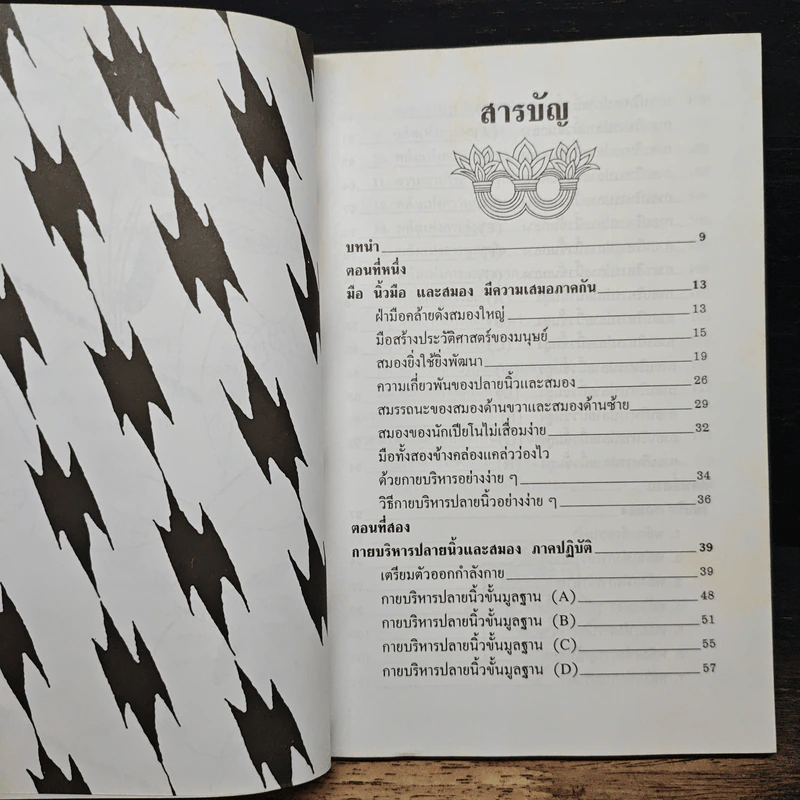 สารบัญ
บทนำ 9
ตอนที่หนึ่ง
มือ นิ้วมือ และสมอง มีความเสมอภาคกัน 13
ฝ่ามือคล้ายดังสมองใหญ่ 13
มือสร้างประวัติศาสตร์ของมนุษย์ 15
สมองยิ่งใช้ยิ่งพัฒนา 19
ความเกี่ยวพันของปลายนิ้วและสมอง 26
สมรรถนะของสมองด้านขวาและสมองด้านซ้าย 29
สมองของนักเปียโนไม่เสื่อมง่าย 32
มือทั้งสองข้างคล่องแคล่วว่องไว
ด้วยกายบริหารอย่างง่าย ๆ 34
วิธีกายบริหารปลายนิ้วอย่างง่าย ๆ 36
ตอนที่สอง
กายบริหารปลายนิ้วและสมอง ภาคปฏิบัติ 39
เตรียมตัวออกกำลังกาย 39
กายบริหารปลายนิ้วขั้นมูลฐาน (A) 48
กายบริหารปลายนิ้วขั้นมูลฐาน (B) 51
กายบริหารปลายนิ้วขั้นมูลฐาน (C) 55
กายบริหารปลายนิ้วขั้นมูลฐาน (D) 57